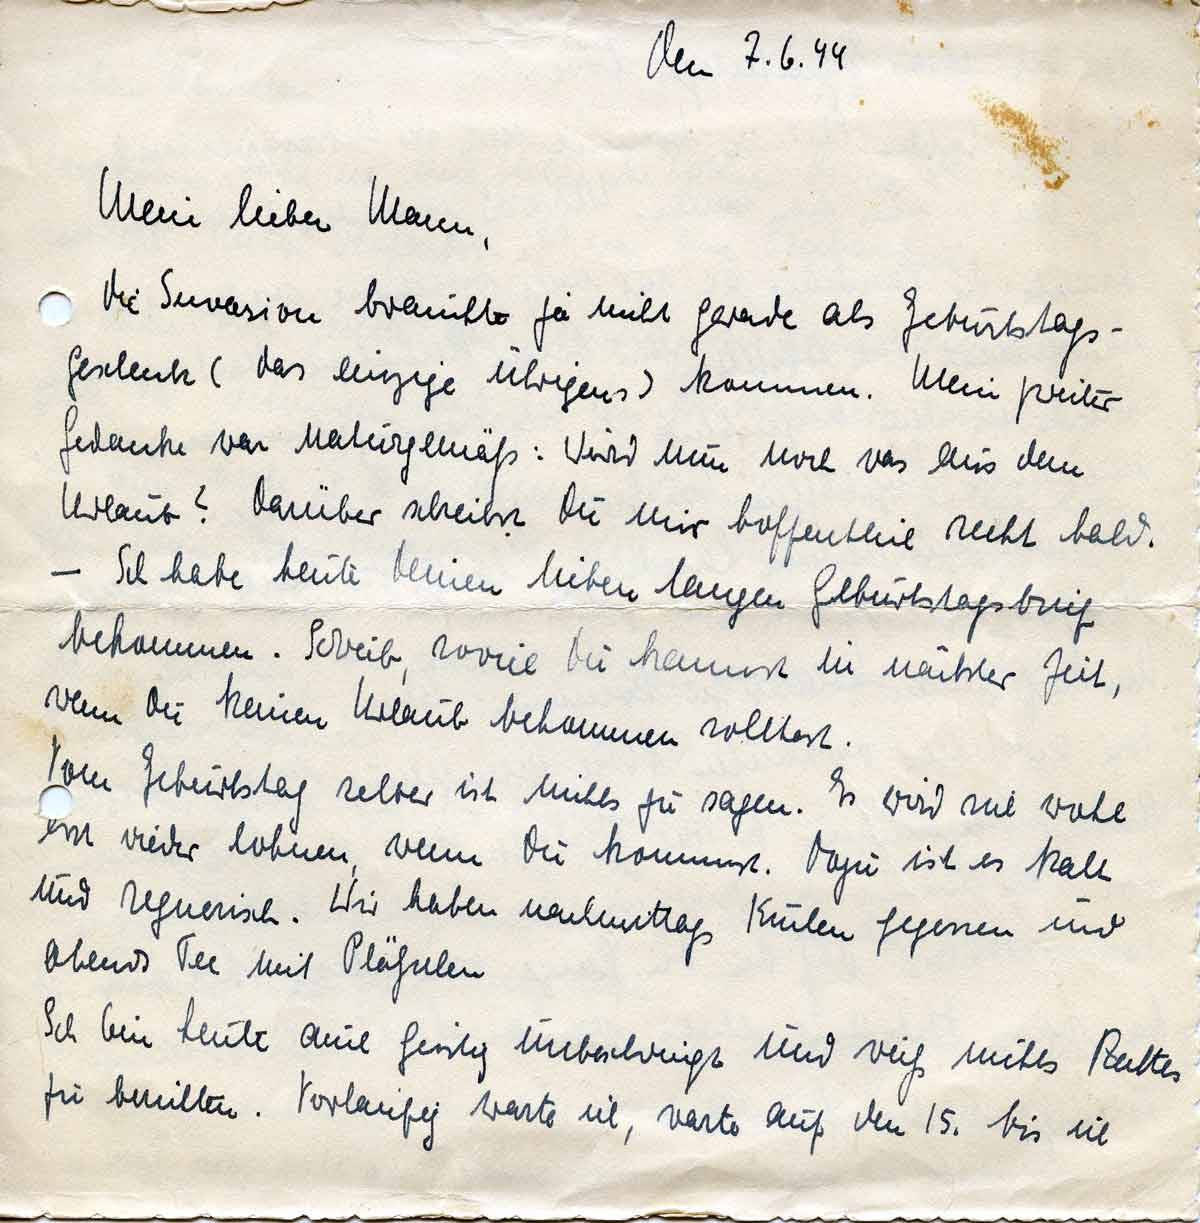 Den 7.6.44
Mein lieber Mann,
die Invasion brauchte ja nicht gerade als Geburtstags-
geschenk (das einzige übrigens) kommen. Mein zweiter
Gedanke war naturgemäß: Wird nun noch was aus dem
Urlaub? Darüber schreibst Du mir hoffentlich recht bald.
— Ich habe heute Deinen lieben langen Geburtstagsbrief
bekommen. Schreib, soviel Du kannst in nächster Zeit,
wenn Du keinen Urlaub bekommen solltest.
Vom Geburtstag selber ist nichts zu sagen. Es wird sich wohl
erst wieder lohnen, wenn Du kommst. Dazu ist es kalt
und regnerisch. Wir haben nachmittags Kuchen gegessen und
abends Tee mit Plätzchen
Ich bin heute auch geistig unbeschwingt und weiß nichts Rechtes
zu berichten. Vorläufig warte ich, warte auf den 15. bis ich